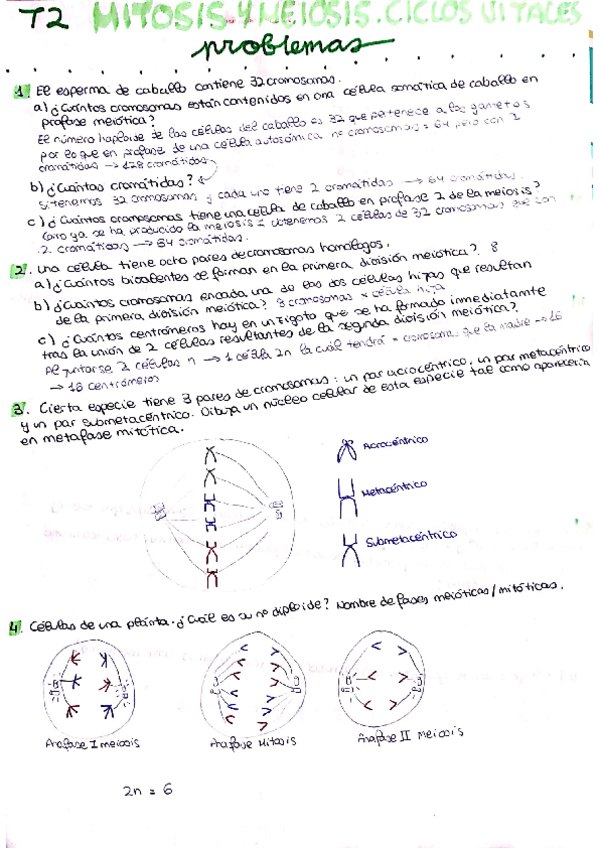 T2 MITOSIS Y MEIOSIS. CICLOS VITALES
problemas
1. El esperma de caballo contiene 32 cromosomas.
a) ¿Cuántos cromosomas están contenidos en una célula somática de caballo en
profase meiótica?
El número haploide de las células del caballo es 32 que pertenece a los gametos
por lo que en profase de una célula autosómica nº cromosomas = 64 pero con 2
cromátidas → 128 cromátidas
b) ¿Cuántas cromátidas?
Si tenemos 32 cromosomas y cada uno tiene 2 cromátidas → 64 cromátidas.
c) ¿Cuántos cromosomas tiene una célula de caballo en profase 2 de la meiosis?
Como ya se ha producido la meiosis I obtenemos 2 células de 32 cromosomas que son
2 cromátidas → 64 cromátidas.
2. Una célula tiene ocho pares de cromosomas homólogos.
a) ¿Cuántos bivalentes se forman en la primera división meiótica? 8
b) ¿Cuántos cromosomas en cada una de las dos células hijas que resultan
de la primera división meiótica? 8 cromosomas x célula hija
c) ¿Cuántos centrómeros hay en un zigoto que se ha formado inmediatamte
tras la unión de 2 células resultantes de la segunda división meiótica?
Al juntarse 2 células n → 1 célula 2n la cuál tendrá = cromosomas que la madre → 16
→ 16 centrómeros
3. Cierta especie tiene 3 pares de cromosomas: un par acrocéntrico, un par metacéntrico
y un par submetacéntrico. Dibuja un núcleo celular de esta especie tal como aparecería
en metafase mitótica.
Acrocéntrico
Metacéntrico
Submetacéntrico
4. Células de una planta. ¿Cuál es su nº diploide? Nombre de fases meióticas/mitóticas.
Anafase I meiosis
Anafase Mitosis
Anafase II Meiosis
2n = 6